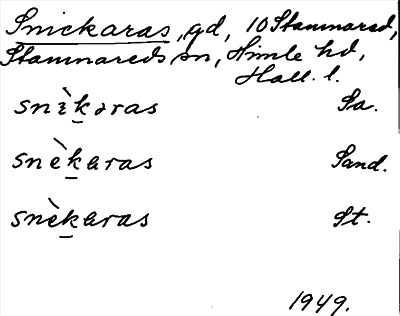 Snickaras, gd, 10 Stamnared,
Stamnareds sn, Himle hd,
Hall. l.
snèk̲aras Sa.
snèk̲aras Sand.
snèk̲aras St.
1949.